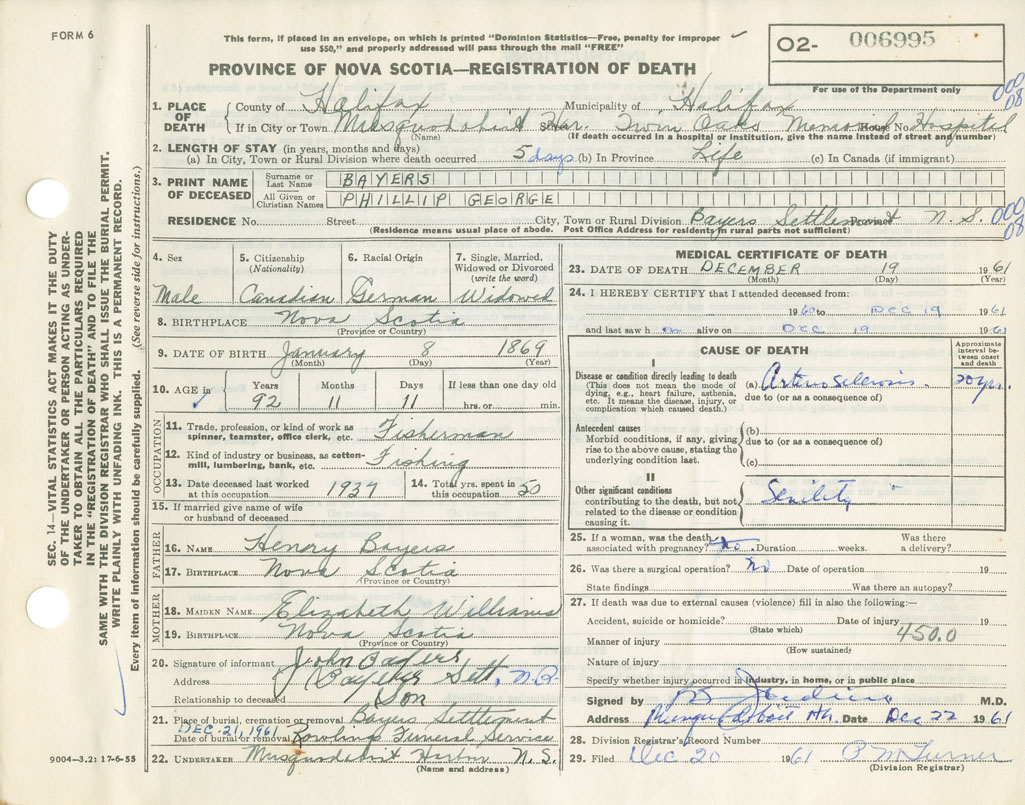 FORM 6
This form, if placed in an envelope, on which is printed "Dominion Statistics—Free, penalty for improper
use $50," and properly addressed will pass through the mail "FREE"
O2- 006995
For use of the Department only
PROVINCE OF NOVA SCOTIA—REGISTRATION OF DEATH
SEC. 14—VITAL STATISTICS ACT MAKES IT THE DUTY
OF THE UNDERTAKER OR PERSON ACTING AS UNDER-
TAKER TO OBTAIN ALL THE PARTICULARS REQUIRED
IN THE "REGISTRATION OF DEATH" AND TO FILE THE
SAME WITH THE DIVISION REGISTRAR WHO SHALL ISSUE THE BURIAL PERMIT.
WRITE PLAINLY WITH UNFADING INK. THIS IS A PERMANENT RECORD.
Every item of information should be carefully supplied. (See reverse side for instructions.)
1. PLACE OF DEATH
County of Halifax Municipality of Halifax
If in City or Town Musquodoboit Har. Street Twin Oaks Memorial House No. Hospital
(Name) (If death occurred in a hospital or institution, give the name instead of street and number)
000
08
2. LENGTH OF STAY (in years, months and days)
(a) In City, Town or Rural Division where death occurred 5 days (b) In Province Life (c) In Canada (if immigrant)
3. PRINT NAME OF DECEASED
Surname or Last Name BAYERS
All Given or Christian Names PHILLIP GEORGE
RESIDENCE No. Street City, Town or Rural Division Bayers Settlement Province N.S.
000
08
(Residence means usual place of abode. Post Office Address for residents in rural parts not sufficient)
4. Sex
Male
5. Citizenship
(Nationality)
Canadian
6. Racial Origin
German
7. Single, Married,
Widowed or Divorced
(write the word)
Widowed
8. BIRTHPLACE Nova Scotia
(Province or Country)
9. DATE OF BIRTH January 8 1869
(Month) (Day) (Year)
10. AGE in
Years Months Days If less than one day old
92 11 11 hrs. or min.
OCCUPATION
11. Trade, profession or kind of work as
spinner, teamster, office clerk, etc. Fisherman
12. Kind of industry or business, as cotton-
mill, lumbering, bank, etc. Fishing
13. Date deceased last worked
at this occupation 1937
14. Total yrs. spent in
this occupation 50
15. If married give name of wife
or husband of deceased
FATHER
16. NAME Henry Bayers
17. BIRTHPLACE Nova Scotia
(Province or Country)
MOTHER
18. MAIDEN NAME Elizabeth Williams
19. BIRTHPLACE Nova Scotia
(Province or Country)
20. Signature of informant John Bayers
Address Bayers Sett. N.S.
Relationship to deceased Son
21. Place of burial, cremation or removal Bayers Settlement
DEC. 21, 1961
Date of burial or removal Rowling Funeral Service
22. UNDERTAKER Musquodoboit Harbor N.S.
(Name and address)
9004—3.2: 17-6-55
MEDICAL CERTIFICATE OF DEATH
23. DATE OF DEATH DECEMBER 19 1961
(Month) (Day) (Year)
24. I HEREBY CERTIFY that I attended deceased from:
1960 to DEC 19 1961
and last saw him alive on DEC 19 1961
CAUSE OF DEATH
Approximate
interval be-
tween onset
and death
I
Disease or condition directly leading to death
(This does not mean the mode of
dying, e.g., heart failure, asthenia,
etc. It means the disease, injury, or
complication which caused death.)
(a) Arteriosclerosis 20 yrs.
due to (or as a consequence of)
Antecedent causes
Morbid conditions, if any, giving
rise to the above cause, stating the
underlying condition last.
(b)
due to (or as a consequence of)
(c)
II
Other significant conditions
contributing to the death, but not
related to the disease or condition
causing it.
Senility
25. If a woman, was the death
associated with pregnancy? No. Duration weeks. Was there
a delivery?
26. Was there a surgical operation? No Date of operation 19
State findings Was there an autopsy?
27. If death was due to external causes (violence) fill in also the following:—
Accident, suicide or homicide? Date of injury 19
(State which)
450.0
Manner of injury
(How sustained)
Nature of injury
Specify whether injury occurred in industry, in home, or in public place
Signed by M.D.
Address Musquodoboit Hr. Date Dec 22 1961
28. Division Registrar's Record Number
29. Filed Dec 20 1961 P. M. Turner
(Division Registrar)